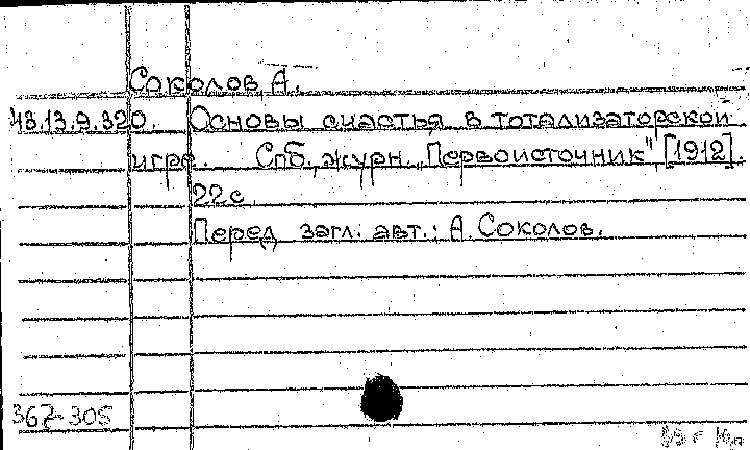 Соколов А.
43.13.9.320. Основы счастья в тотализаторской
игре. Спб., журн. „Первоисточник", [1912].
22с.
Перед загл. авт.: А. Соколов.
367-305